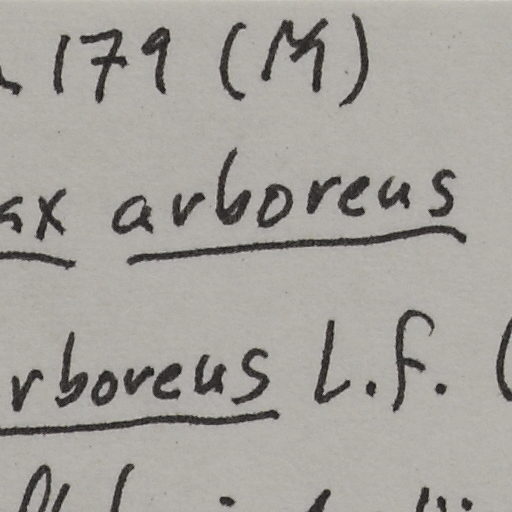 179 (M)
ax arboreus
rboreus L.f. (